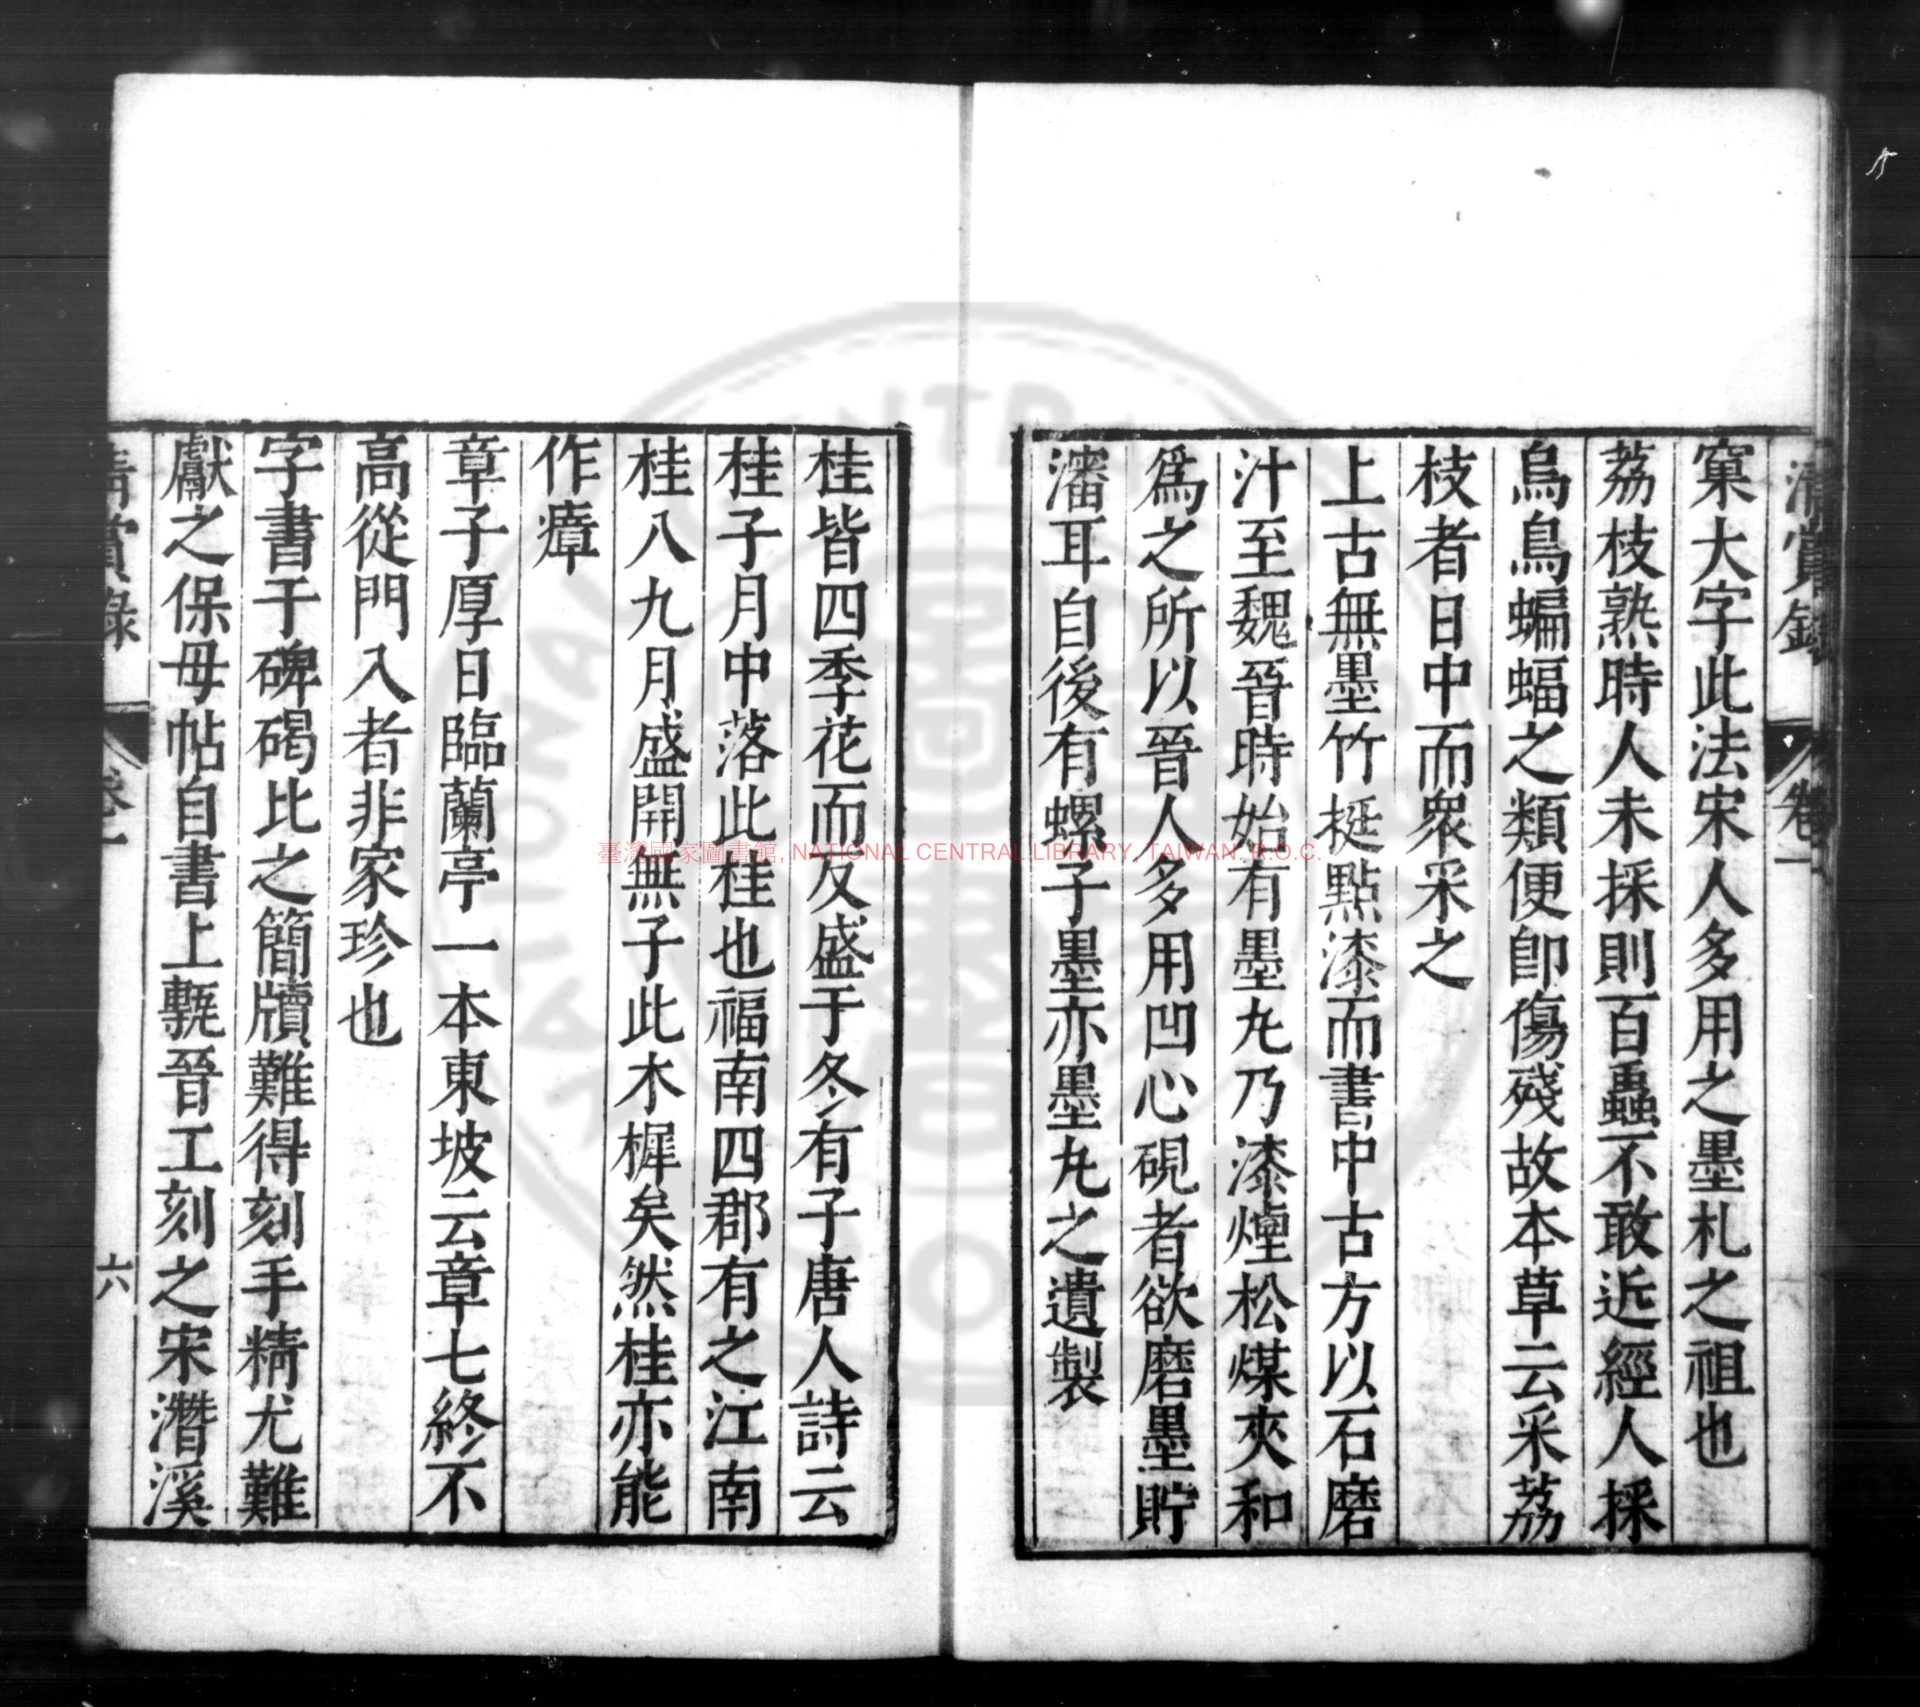 清賞錄 卷一
窠大字此法宋人多用之墨札之祖也
荔枝熟時人未採則百蟲不敢近經人採
烏鳥蝙蝠之類便卽傷殘故本草云采荔
枝者日中而衆采之
上古無墨竹挺點漆而書中古方以石磨
汁至魏晉時始有墨丸乃漆煙松煤夾和
爲之所以晉人多用凹心硯者欲磨墨貯
瀋耳自後有螺子墨亦墨丸之遺製
桂皆四季花而反盛于冬有子唐人詩云
桂子月中落此桂也福南四郡有之江南
桂八九月盛開無子此木樨矣然桂亦能
作瘴
章子厚日臨蘭亭一本東坡云章七終不
高從門入者非家珍也
字書于碑碣比之簡牘難得刻手精尤難
獻之保母帖自書上甎晉工刻之宋濳溪
清賞錄 卷一 六
臺灣國家圖書館, NATIONAL CENTRAL LIBRARY, TAIWAN. R.O.C.